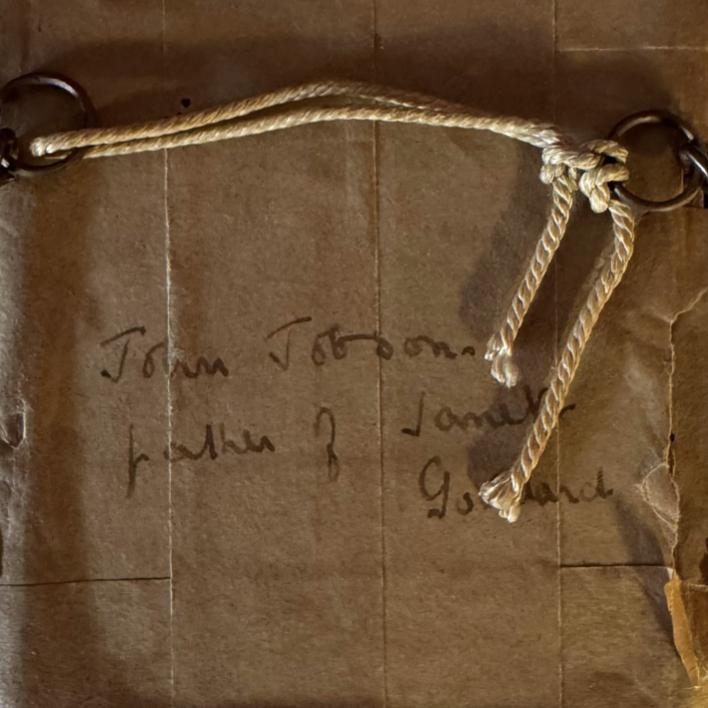 John Jobson.
father of Janet